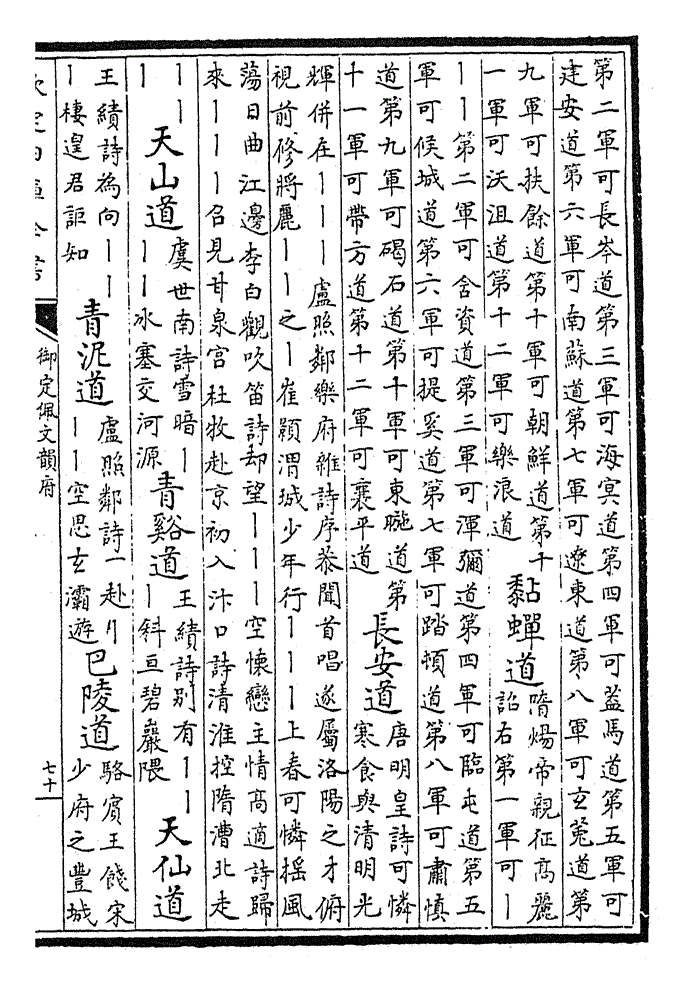 第二軍可長岑道第三軍可海冥道第四軍可葢馬道第五軍可
建安道第六軍可南蘇道第七軍可遼東道第八軍可玄菟道第
九軍可扶餘道第十軍可朝鮮道第十
一軍可沃沮道第十二軍可樂浪道
黏蟬道
隋煬帝親征高麗
詔右第一軍可丨
丨丨第二軍可含資道第三軍可渾彌道第四軍可臨屯道第五
軍可候城道第六軍可提奚道第七軍可踏頓道第八軍可肅慎
道第九軍可碣石道第十軍可東暆道第
十一軍可帶方道第十二軍可襄平道
長安道
唐明皇詩可憐
寒食與清明光
輝併在丨丨丨盧照鄰樂府雜詩序恭聞首唱遂屬洛陽之才俯
視前修將麗丨丨之丨崔顥渭城少年行丨丨丨上春可憐揺風
蕩日曲江邊李白觀吹笛詩却望丨丨丨空懷戀主情高適詩歸
來丨丨丨召見甘泉宫杜牧赴京初入汴口詩清淮控隋漕北走
丨丨
丨
天山道
虞世南詩雪暗丨
丨丨氷塞交河源
青谿道
王績詩别有丨丨
丨斜亘碧巖隈
天仙道
王績詩為向丨丨
丨棲遑君詎知
青泥道
盧照鄰詩一赴丨
丨丨空思玄灞遊
巴陵道
駱賓王餞宋
少府之豐城
欽定四庫全書
御定佩文韻府
七十